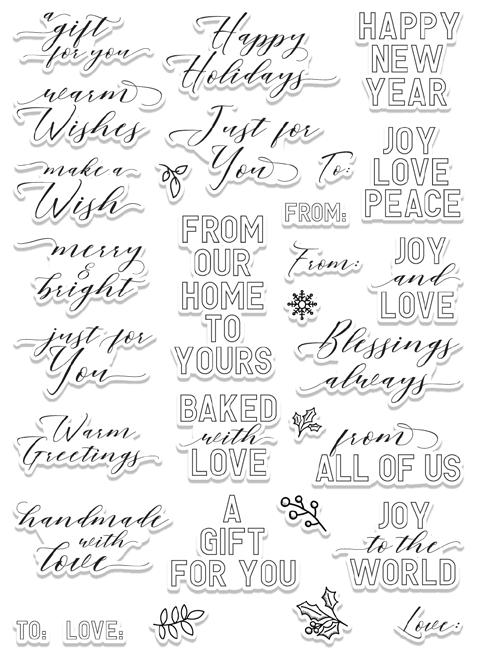 a
gift
for you
warm
Wishes
make a
Wish
merry
&
bright
just for
You
Warm
Greetings
handmade
with
love
TO:
LOVE:
Happy
Holidays
Just for
You
FROM
OUR
HOME
TO
YOURS
BAKED
with
LOVE
A
GIFT
FOR YOU
HAPPY
NEW
YEAR
To:
JOY
LOVE
PEACE
FROM:
From:
JOY
and
LOVE
Blessings
always
from
ALL OF US
JOY
to the
WORLD
Love: